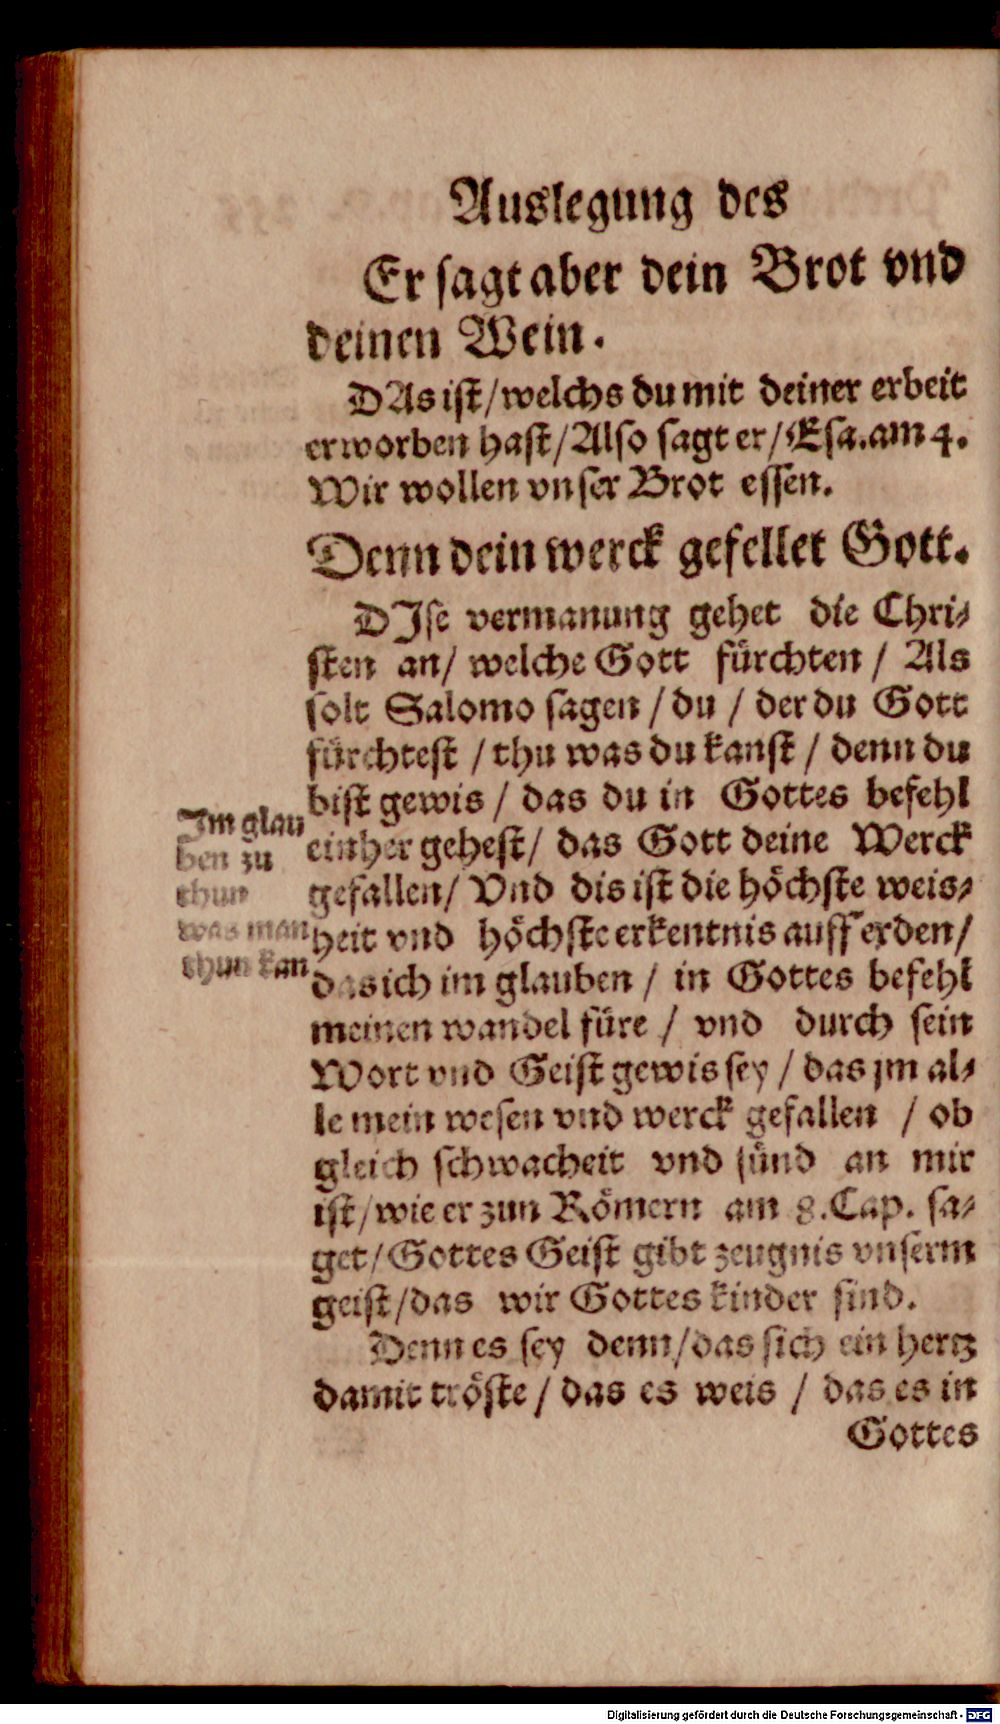 Auslegung des
Er sagt aber dein Brot vnd
deinen Wein.
DAs ist/welchs du mit deiner erbeit
erworben hast/Also sagt er/Esa.am 4.
Wir wollen vnser Brot essen.
Denn dein werck gefellet Gott.
DJse vermanung gehet die Chri-
sten an/ welche Gott fürchten / Als
solt Salomo sagen / du / der du Gott
fürchtest / thu was du kanst / denn du
bist gewis / das du in Gottes befehl
einher gehest/ das Gott deine Werck
gefallen/ Vnd dis ist die höchste weis-
heit vnd höchste erkentnis auff erden/
das ich im glauben / in Gottes befehl
meinen wandel füre / vnd durch sein
Wort vnd Geist gewis sey / das jm al-
le mein wesen vnd werck gefallen / ob
gleich schwacheit vnd sünd an mir
ist/wie er zun Römern am 8.Cap. sa-
get/Gottes Geist gibt zeugnis vnserm
geist/das wir Gottes kinder sind.
Denn es sey denn/das sich ein hertz
damit tröste / das es weis / das es in
Gottes
Jm glau
ben zu
thun
was man
thun kan
Digitalisierung gefördert durch die Deutsche Forschungsgemeinschaft - DFG